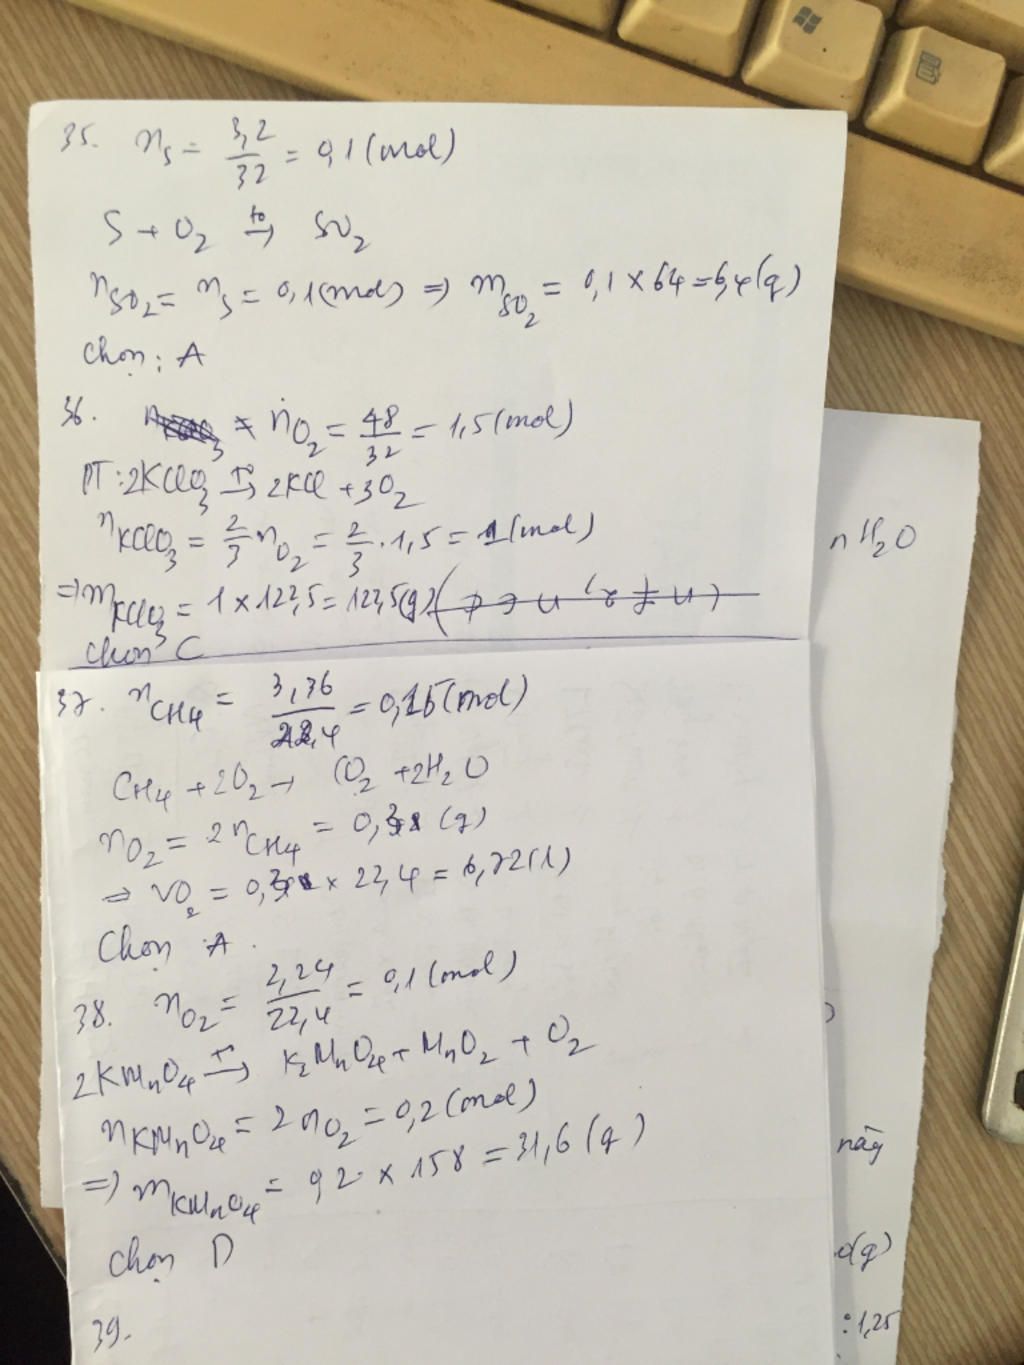 35. nS = 3,2/32 = 0,1 (mol)
S + O2 to→ SO2
nSO2 = nS = 0,1 (mol) => mSO2 = 0,1 × 64 = 6,4 (g)
Chọn: A
36. nO2 = 48/32 = 1,5 (mol)
PT: 2KClO3 to→ 2KCl + 3O2
nKClO3 = 2/3 nO2 = 2/3 . 1,5 = 1 (mol)
=> mKClO3 = 1 × 122,5 = 122,5 (g)
chọn C
37. nCH4 = 3,36/22,4 = 0,15 (mol)
CH4 + 2O2 → CO2 + 2H2O
nO2 = 2nCH4 = 0,3 (g)
=> VO2 = 0,3 × 22,4 = 6,72 (l)
Chọn A.
38. nO2 = 2,24/22,4 = 0,1 (mol)
2KMnO4 to→ K2MnO4 + MnO2 + O2
nKMnO4 = 2nO2 = 0,2 (mol)
=> mKMnO4 = 0,2 × 158 = 31,6 (g)
Chọn D
39.
nH2O
này
(g)
: 1,25